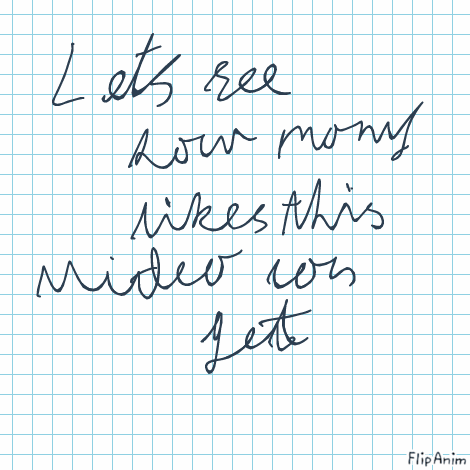 Lets see
how many
likes this
video can
gette
FlipAnim